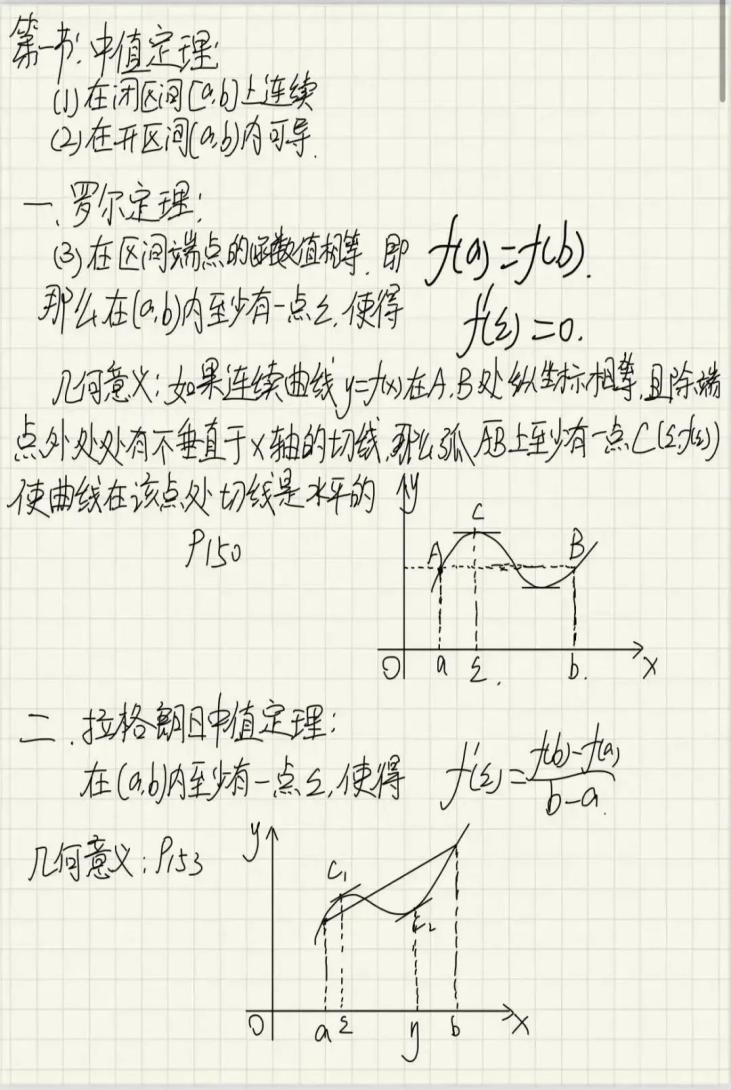 第一节:中值定理:
(1)在闭区间[a,b]上连续
(2)在开区间(a,b)内可导.
一、罗尔定理:
(3)在区间端点的函数值相等,即 f(a)=f(b).
那么在(a,b)内至少有一点ξ,使得 f'(ξ)=0.
几何意义:如果连续曲线y=f(x)在A,B处纵坐标相等,且除端
点外处处有不垂直于x轴的切线,那么弧AB上至少有一点C(ξ,f(ξ))
使曲线在该点处切线是水平的
P150
y
C
A B
O a ξ. b. x
二.拉格朗日中值定理:
在(a,b)内至少有一点ξ,使得 f'(ξ)=f(b)-f(a)/b-a.
几何意义:P153
y
C1
C2
O a ξ η b x